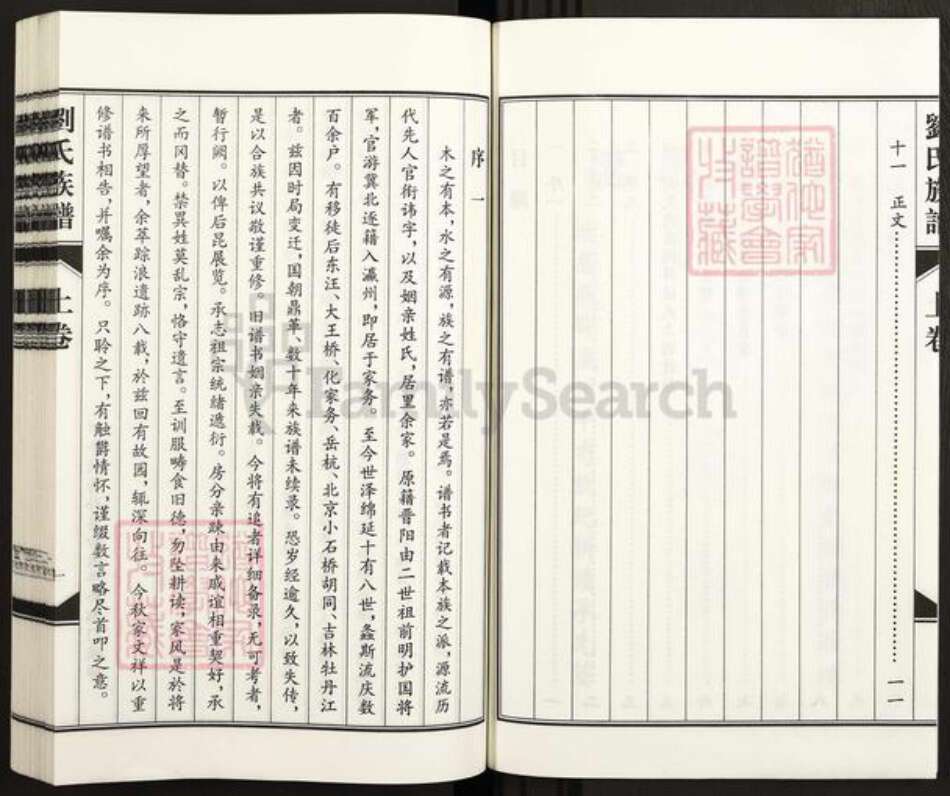 劉氏族譜
上卷
十一 正文……………………一一
猶他家
譜學會
收藏
序一
木之有本，水之有源，族之有谱，亦若是焉。谱书者记载本族之派，源流历
代先人官衔讳字，以及姻亲姓氏，居里余家。原籍晋阳由二世祖前明护国将
军，官游冀北逐籍入瀛州，即居于家务。至今世泽绵延十有八世，螽斯流庆数
百余户。有移徒后东汪、大王桥、化家务、岳杭、北京小石桥胡同、吉林牡丹江
者。兹因时局变迁，国朝鼎革、数十年来族谱未续录。恐岁经逾久，以致失传，
是以合族共议敬谨重修。旧谱书姻亲失载。今将有追者详细备录，无可考者，
暂行阙。以俾后昆展览。承志祖宗统绪遞衍。房分亲疎由来戚谊相重契好，承
之而冈替。禁異姓莫乱宗，恪守遗言。至训服畴食旧德，勿坠耕读，家风是於将
来所厚望者，余萃踪浪遗跡八载，於兹回有故园，辄深向往。今秋家文祥以重
修谱书相告，并嘱余为序。只聆之下，有触爵情怀，谨缀数言略尽首叩之意。
劉氏族譜
上卷
一
FamilySearch